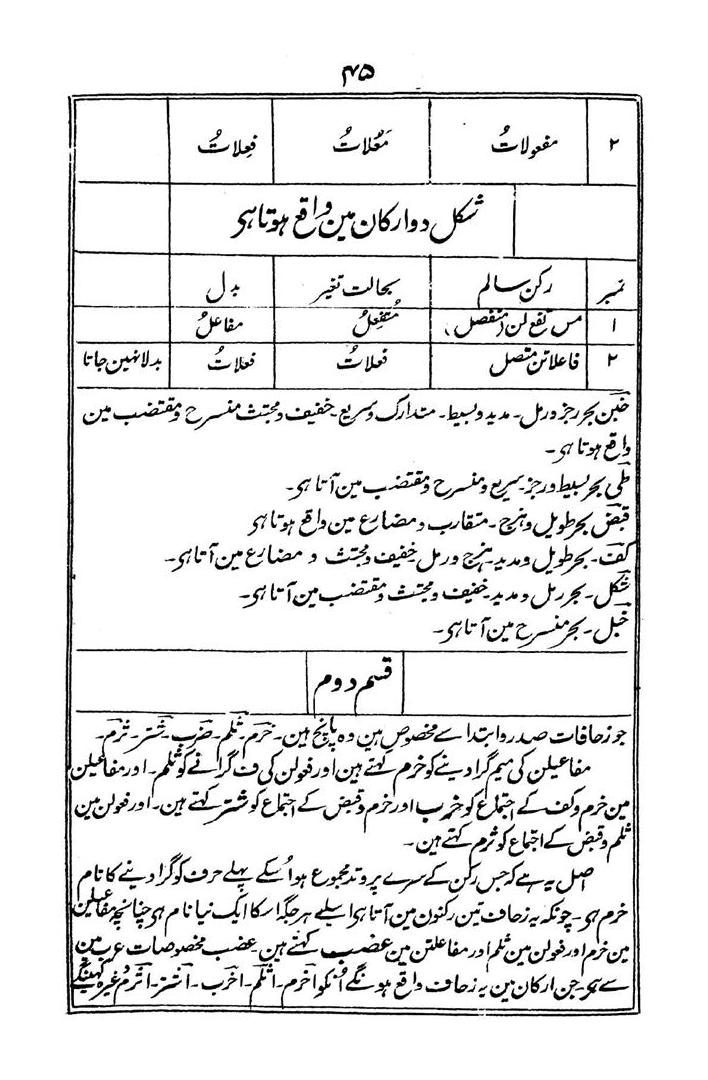 ۴۵
۲ مفعولاتُ مَعُلاتُ فعِلاتُ
شکل دو ارکان مین واقع ہوتا ہی
نمبر رکن سالم بحالت تغیر بدل
۱ مس تفع لن (منفصل) مُتفعِلُ مفاعلُ
۲ فاعلاتن متصل فعلاتُ فعلاتُ بدلا نہین جاتا
خبن بحر رجز و رمل۔ مدید و بسیط۔ متدارک و سریع۔ خفیف و مجتث منسرح و مقتضب مین
واقع ہوتا ہی۔
طی بحر بسیط و رجز۔ سریع و منسرح و مقتضب مین آتا ہی۔
قبض بحر طویل و ہزج۔ متقارب و مضارع مین واقع ہوتا ہی
کف۔ بحر طویل و مدید۔ ہزج و رمل خفیف و مجتث و مضارع مین آتا ہی۔
شکل۔ بحر رمل و مدید۔ خفیف و مجتث و مقتضب مین آتا ہی۔
خبل۔ بحر منسرح مین آتا ہی۔
قسم دوم
جو زحافات صدر و ابتدا سے مخصوص ہین وہ پانچ ہین۔ خرم۔ ثلم۔ خرب۔ شتر۔ ثرم۔
مفاعیلن کی میم گرا دینے کو خرم کہتے ہین اور فعولن کی ف گرانے کو ثلم۔ اور مفاعیلن
مین خرم و کف کے اجتماع کو خرب اور خرم و قبض کے اجتماع کو شتر کہتے ہین۔ اور فعولن مین
ثلم و قبض کے اجتماع کو ثرم کہتے ہین۔
اصل یہ ہے کہ جس رکن کے سرے پر وتد مجموع ہو اُسکے پہلے حرف کو گرا دینے کا نام
خرم ہی۔ چونکہ یہ زحاف تین رکنون مین آتا ہی اسلیے ہر جگہ اسکا ایک نیا نام ہی چنانچہ مفاعیلن
مین خرم اور فعولن مین ثلم اور مفاعلتن مین عضب کہتے ہین۔ عضب مخصوصات عرب مین
سے ہی۔ جن ارکان مین یہ زحاف واقع ہونگے اُنکو اخرم۔ اثلم۔ اخرب۔ اشتر۔ اثرم وغیرہ کہینگے